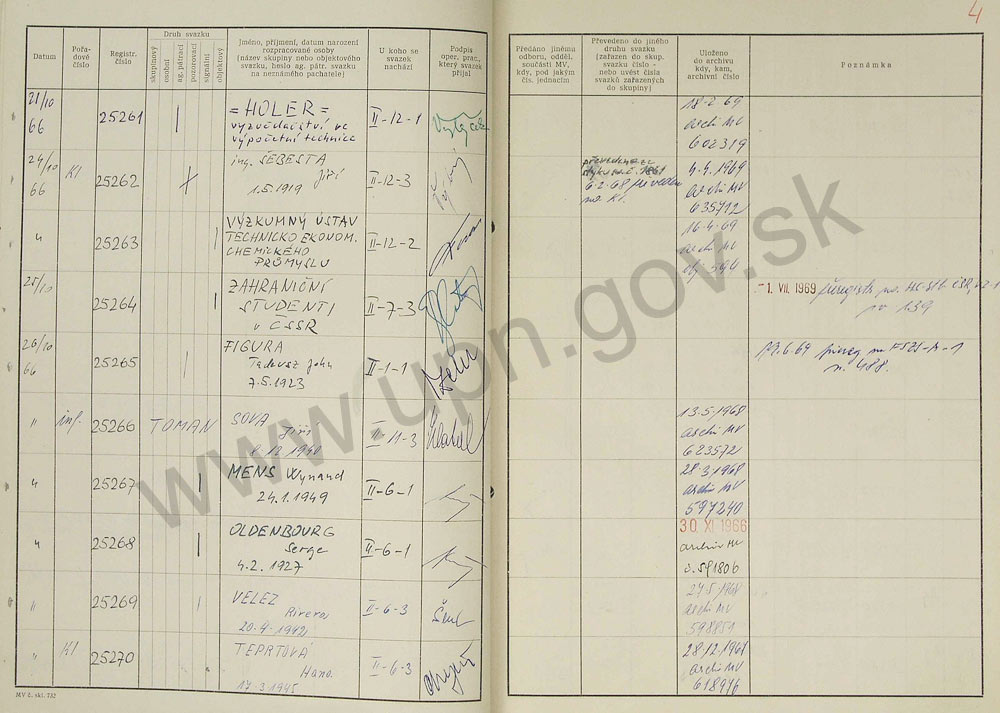 4
Datum
Pořa-
dové
číslo
Registr.
číslo
Druh svazku
skupinový
osobní
ag. pátrací
pozorovací
signální
objektový
Jméno, příjmení, datum narození
rozpracované osoby
(název skupiny nebo objektového
svazku, heslo ag. pátr. svazku
na neznámého pachatele)
U koho se
svazek
nachází
Podpis
oper. prac.,
který svazek
přijal
Předáno jinému
odboru, odděl.
součásti MV,
kdy, pod jakým
čís. jednacím
Převedeno do jiného
druhu svazku
(zařazen do skup.
svazku číslo -
nebo uvést čísla
svazků zařazených
do skupiny)
Uloženo
do archivu
kdy, kam,
archivní číslo
Poznámka
21/10
66
25261
= HOLER =
vyzvědačství ve
výpočetní technice
II-12-1
18-2-69
archiv MV
602319
24/10
66
KI
25262
ing. ŠEBESTA
Jiří
1.5.1919
II-12-3
6-2-68 převeden
na KI.
4.4.1969
archiv MV
635712
"
25263
VÝZKUMNÝ ÚSTAV
TECHNICKO EKONOM.
CHEMICKÉHO
PRŮMYSLU
II-12-2
16-4-69
archiv MV
25/10
25264
ZAHRANIČNÍ
STUDENTI
v ČSSR
II-7-3
-1. VII. 1969
139
26/10
66
25265
FIGURA
Tadeusz John
7.5.1923
II-1-1
19.6.69
n. 488.
"
inf.
25266
TOMAN
SOVA
Jiří
12 1940
II-11-3
13.5.1968
archiv MV
623572
"
25267
MENS Wynand
24.1.1949
II-6-1
28.3.1968
archiv MV
597240
"
25268
OLDENBOURG
Serge
4.2.1927
II-6-1
30 XI 1966
archiv MV
č. 591806
"
25269
VELEZ
Rivera
20-4-1942
II-6-3
27-5-1968
archiv MV
598851
"
KI
25270
TEPRTOVÁ
Hana
17-3-1945
II-6-3
28.12.1968
archiv MV
618976
MV č. skl. 732
www.upn.gov.sk